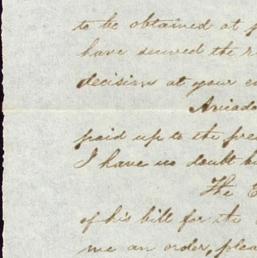 to be obtained at
have secured the
decision at your
paid up to the
I have no doubt
The
of his bill for the
me an order, plea